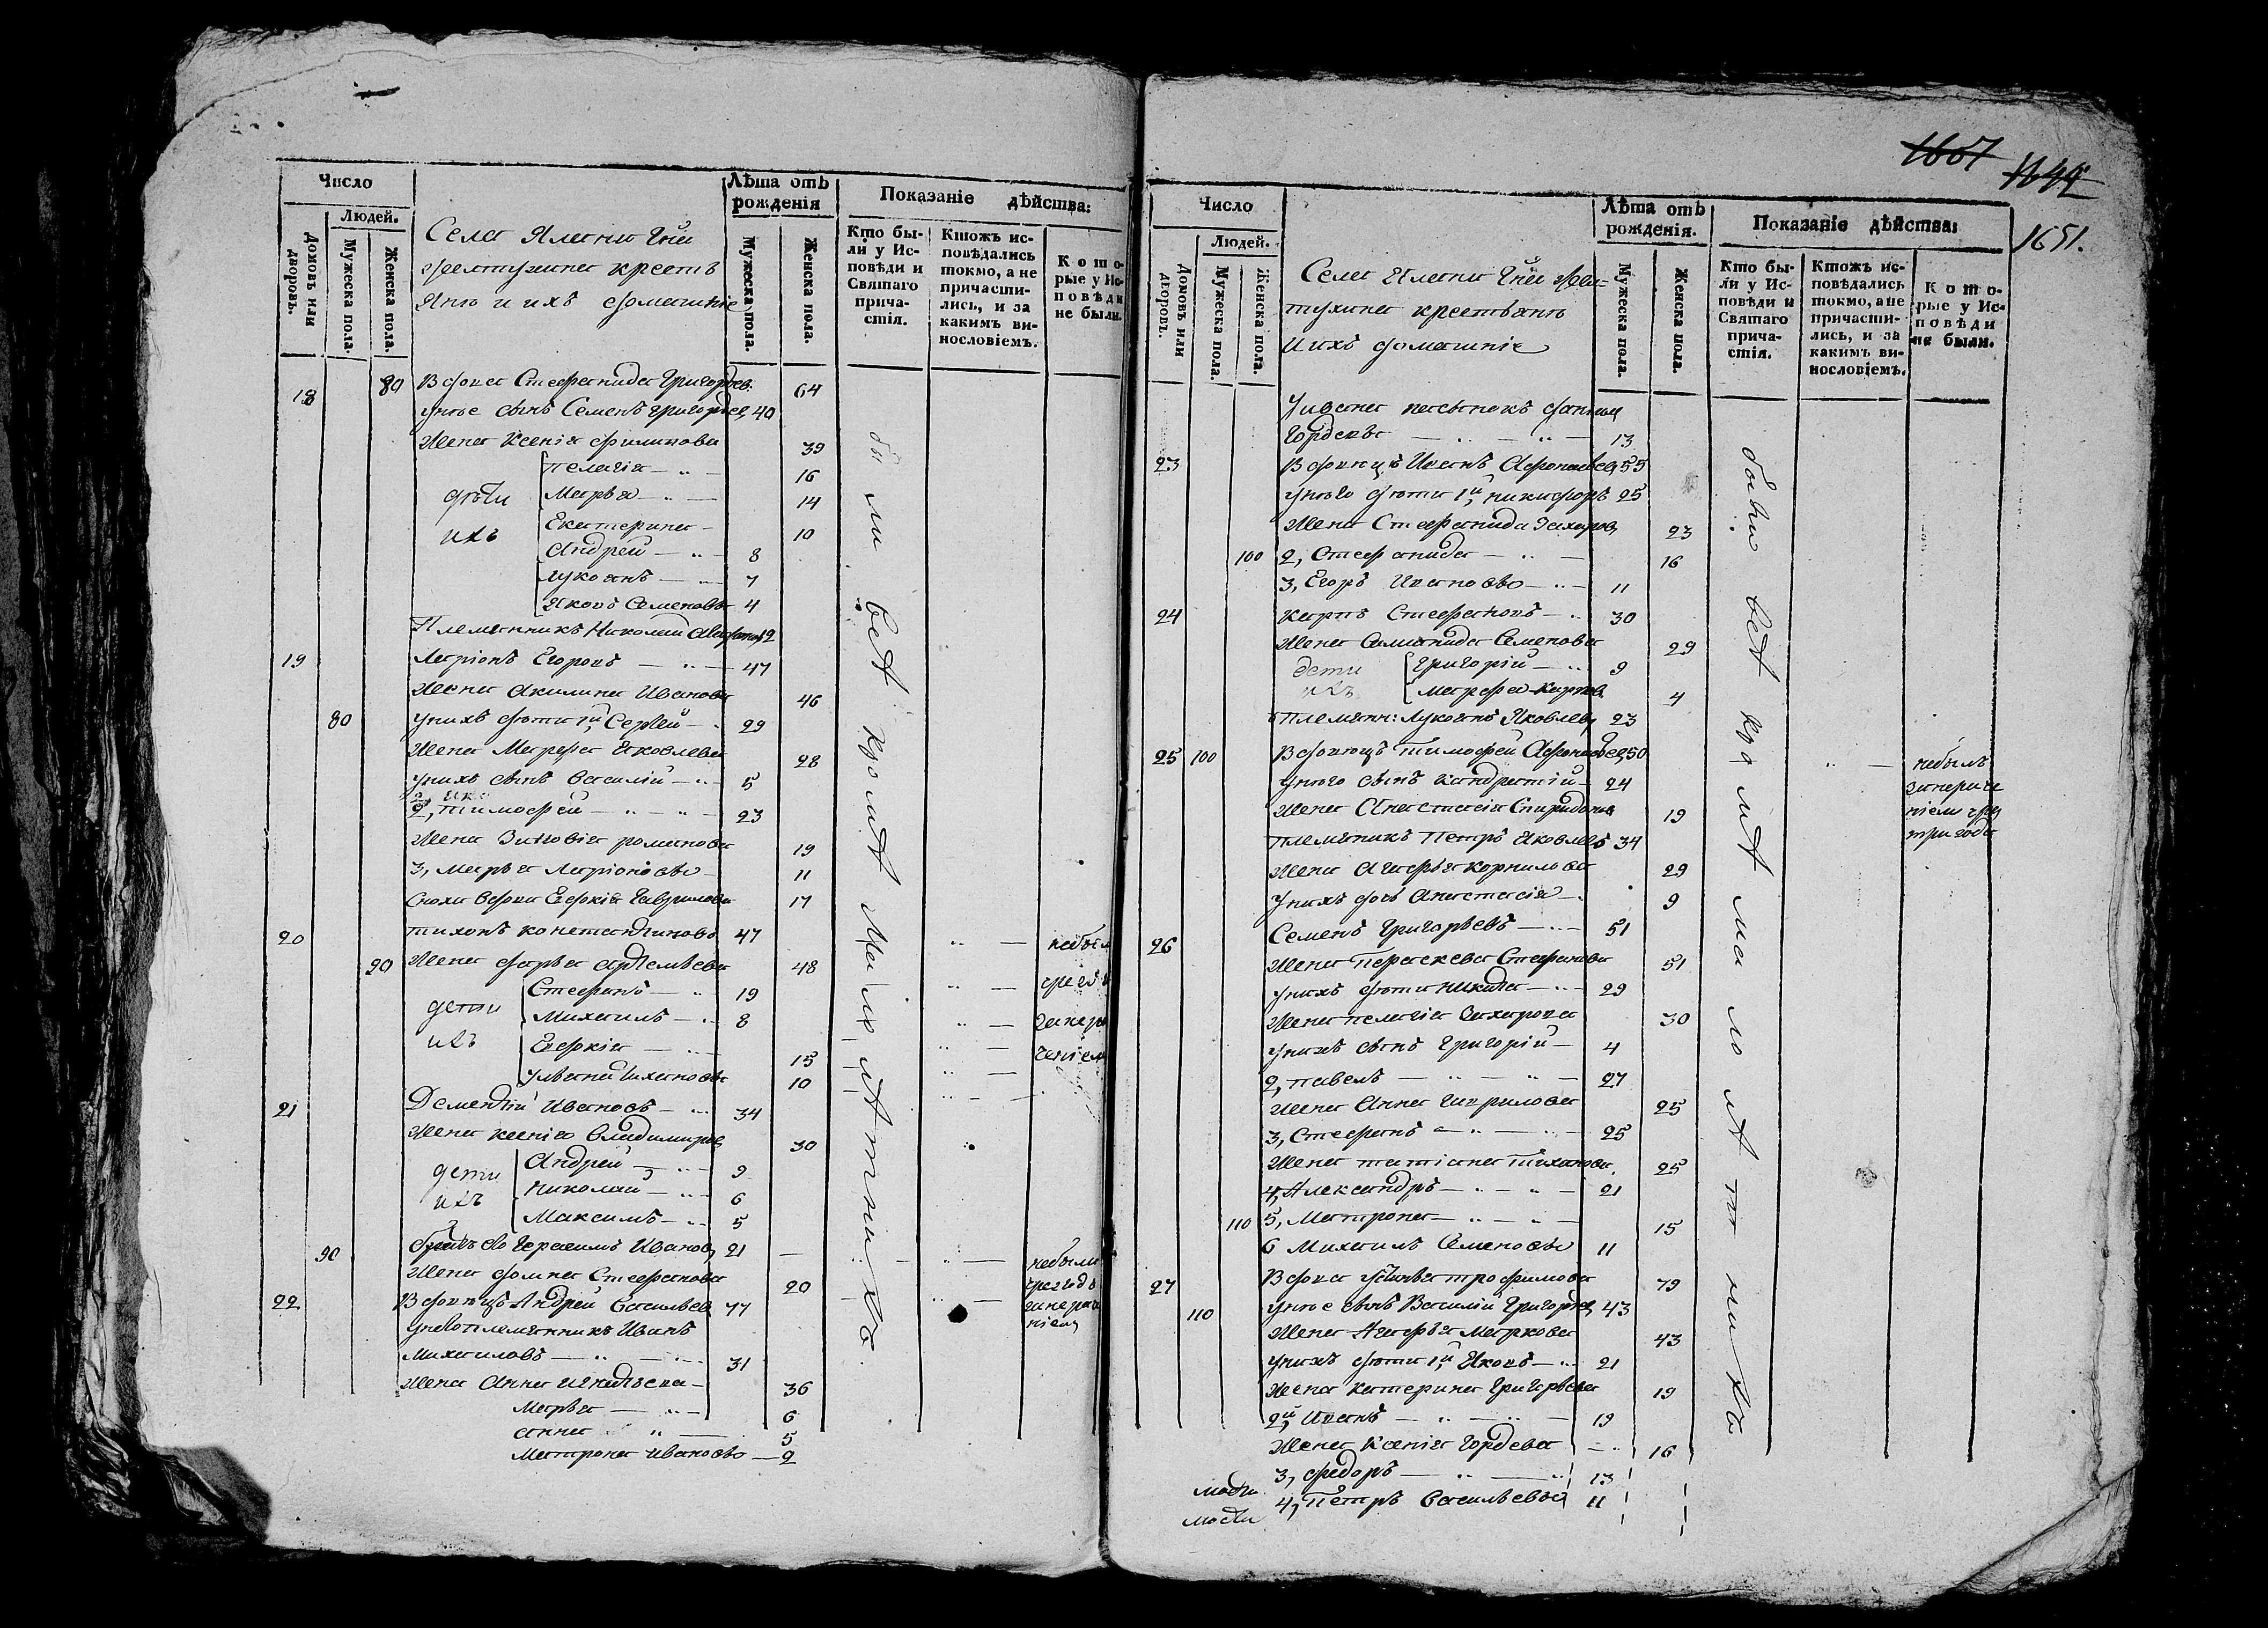 Число
Людей.
Домовъ или дворовъ.
Мужеска пола.
Женска пола.
Села
крестъ
янъ и ихъ домашніе
Лѣта отъ рожденія
Мужеска пола.
Женска пола.
Показаніе дѣйства:
Кто были у Исповѣди и Святаго причастія.
Ктожъ исповѣдались токмо, а не причастились, и за какимъ винословіемъ.
Которые у Исповѣди не были.
18 80 Вдова Стефанида Григорьев: 64
унее сынъ Семенъ Григорьев 40
Жена Ксенія Филипова 39
дѣти ихъ Пелагія — 16
Марья — 14
Екатерина — 10
Андрей — 8
Лукоянъ — 7
Яковъ Семеновы 4
Племянникъ Николай 12
19 Ларіонъ Егоровъ — 47
Жена Акилина Иванова 46
80 унихъ дѣти 1й, Сергей — 29
Жена Марфа Яковлева 28
унихъ сынъ Василій — 5
2, Тимофей — 23
Жена Зиновія романова 19
3, Марья Ларіоновы — 11
Сноха вдова Евдокія Гаврилова 17
20 Тихонъ константиновъ 47 небыл
90 Жена дарья 48
дети ихъ Стефанъ — 19
Михаилъ — 8
Евдокія — 15
Ульяна Тихановы 10
21 Дементій Ивановъ — 34
Жена ксенія Владимиров 30
дети ихъ Андрей — 9
Николай — 6
Максимъ — 5
90 братъ ево Герасимъ Иванов 21 небыли
Жена домна Стефанова 20
22 Вдовецъ Андрей Васильев 77
унево племянникъ Иванъ
Михаиловъ — 31
Жена Анна 36
Марья — 6
анна — 5
Матрона Ивановы — 2
были всѣ кромѣ малолѣтнихъ
1667
1644
1651.
Число
Людей.
Домовъ или дворовъ.
Мужеска пола.
Женска пола.
Села
крестьянъ
ихъ домашніе
Лѣта отъ рожденія.
Мужеска пола.
Женска пола.
Показаніе дѣйства:
Кто были у Исповѣди и Святаго причастія.
Ктожъ исповѣдались токмо, а не причастились, и за какимъ винословіемъ.
Которые у Исповѣди не были.
Гордевъ — 13
23 Вдовецъ Иванъ Афонасьев 55
унего дѣти 1й, никифоръ 25
Жена Стефанида Захаров 23
100 2, Стефанида — 16
3, Егоръ Ивановы — 11
24 Карпъ Стефановъ — 30
Жена Семенова 29
дети ихъ Григорій — 9
Марфа Карпов 4
племян: Лукоянъ Яковлев 23
25 100 Вдовецъ Тимофей Афонасьев 50 небылъ
унего сынъ Кандратій — 24
Жена Анастасія Спиридонов 19
племяникъ Петръ Яковлев 34 три года
Жена Агафья корнилова 29
унихъ дочь Анастасія — 9
26 Семенъ Григорьевъ — 51
Жена Параскева Стефанова 51
унихъ дѣти никита — 29
Жена пелагія Захарова 30
унихъ сынъ Григорій — 4
2, павелъ — 27
Жена Анна Гаврилова 25
3, Стефанъ — 25
Жена татіана Тиханова 25
4, Александръ — 21
110 5, Матрона — 15
6 Михаилъ Семеновы 11
27 Вдова трофимова 79
110 унее сынъ Василій Григорьев 43
Жена Агафья Маркова 43
унихъ дѣти 1й Яковъ — 21
Жена катерина Григорьева 19
2й, Иванъ — 19
Жена Ксенія Гордева 16
3, федоръ — 13
4, Петръ Васильевы 11
были всѣ кромѣ малолѣтнихъ